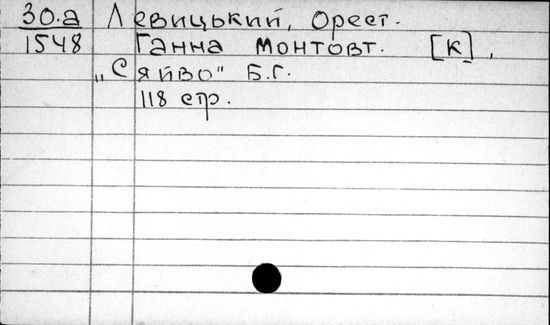 30.а Левицький, Орест.
1548 Ганна Монтовт. [К],
„Сяйво" Б.Г.
118 стр.